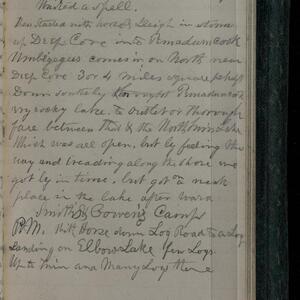 waited a spell.
Ben started with wood Sleigh in storm
up Deep Cove into Pemadumcook
comes in on North near
Deep Cove 3 or 4 miles square
Down Southerly Pemadumcook
rocky lake. to outlet or thorough
fare between this & the North
was all open, but by feeling the
way and treading along the shore we
got by in time. but got a
place in the lake after ward
Smith & Bowens Camp
P.M. with Horse down Log Road to a Log
Landing on Elbow Lake few Logs
up to him and Many Log there